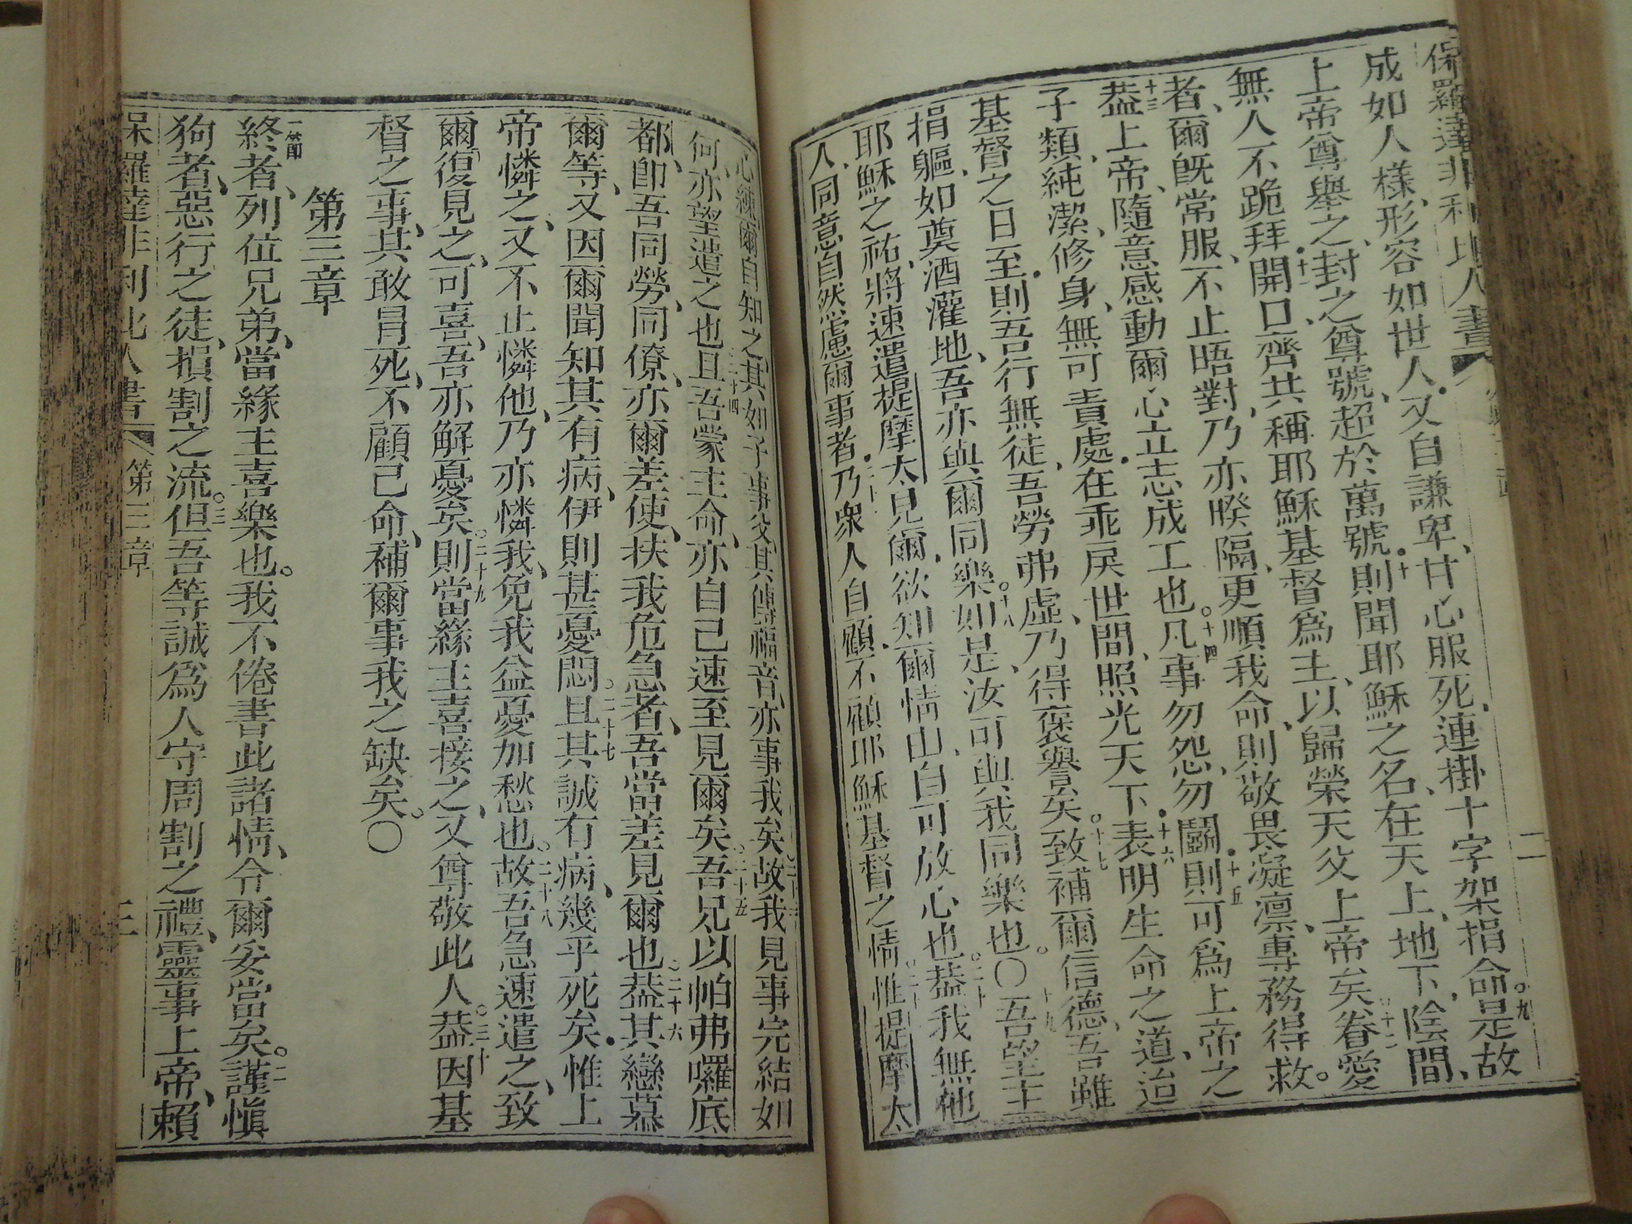 保羅達非利比人書 二
成如人樣、形容如世人、又自謙卑、甘心服死、連掛十字架捐命、九是故
上帝尊舉之、封之尊號、超於萬號、十則聞耶穌之名、在天上、地下、陰間、
無人不跪拜、十一開口齊共稱耶穌基督爲主、以歸榮天父上帝矣、十二眷愛
者、爾既常服、不止晤對、乃亦暌隔、更順我命、則敬畏凝凜、專務得救。
十三葢上帝、隨意感動爾心立志成工也。十四凡事勿怨、勿鬭、十五則可爲上帝之
子類、純潔、修身、無可責處、在乖戾世間、照光天下、十六表明生命之道、迨
基督之日至、則吾行無徒、吾勞弗虛、乃得褒譽矣。十七致補爾信德、吾雖
捐軀、如奠酒灌地、吾亦與爾同樂。十八如是、汝可與我同樂也。〇十九吾望主
耶穌之祐、將速遣提摩太見爾、欲知爾情由、自可放心也。二十葢我無他
人、同意自然慮爾事者、乃衆人自顧、不顧耶穌基督之情。惟提摩太
心練、爾自知之、其如子事父、其傳福音、亦事我矣、故我見事完結如
何、亦望遣之也。二十四且吾蒙主命、亦自己速至見爾矣。二十五吾兄以帕弗囉底
都、卽吾同勞、同僚、亦爾差使、扶我危急者、吾當差見爾也。二十六葢其戀慕
爾等、又因爾聞知其有病、伊則甚憂悶。二十七且其誠有病、幾乎死矣、惟上
帝憐之、又不止憐他、乃亦憐我、免我益憂加愁也。二十八故吾急速遣之、致
爾復見之、可喜、吾亦解憂矣。二十九則當緣主喜接之、又尊敬此人。三十葢因基
督之事、其敢冒死、不顧己命、補爾事我之缺矣。〇
第三章
一節終者、列位兄弟、當緣主喜樂也。我不倦書此諸情、令爾妥當矣。二謹愼
狗者、惡行之徒、損割之流。三但吾等誠爲人守周割之禮、靈事上帝、賴
保羅達非利比人書 第三章 三